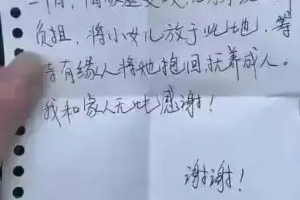 负担，将小女儿放于此地，等
待有缘人将她抱回，抚养成人。
我和家人无比感谢！
谢谢！